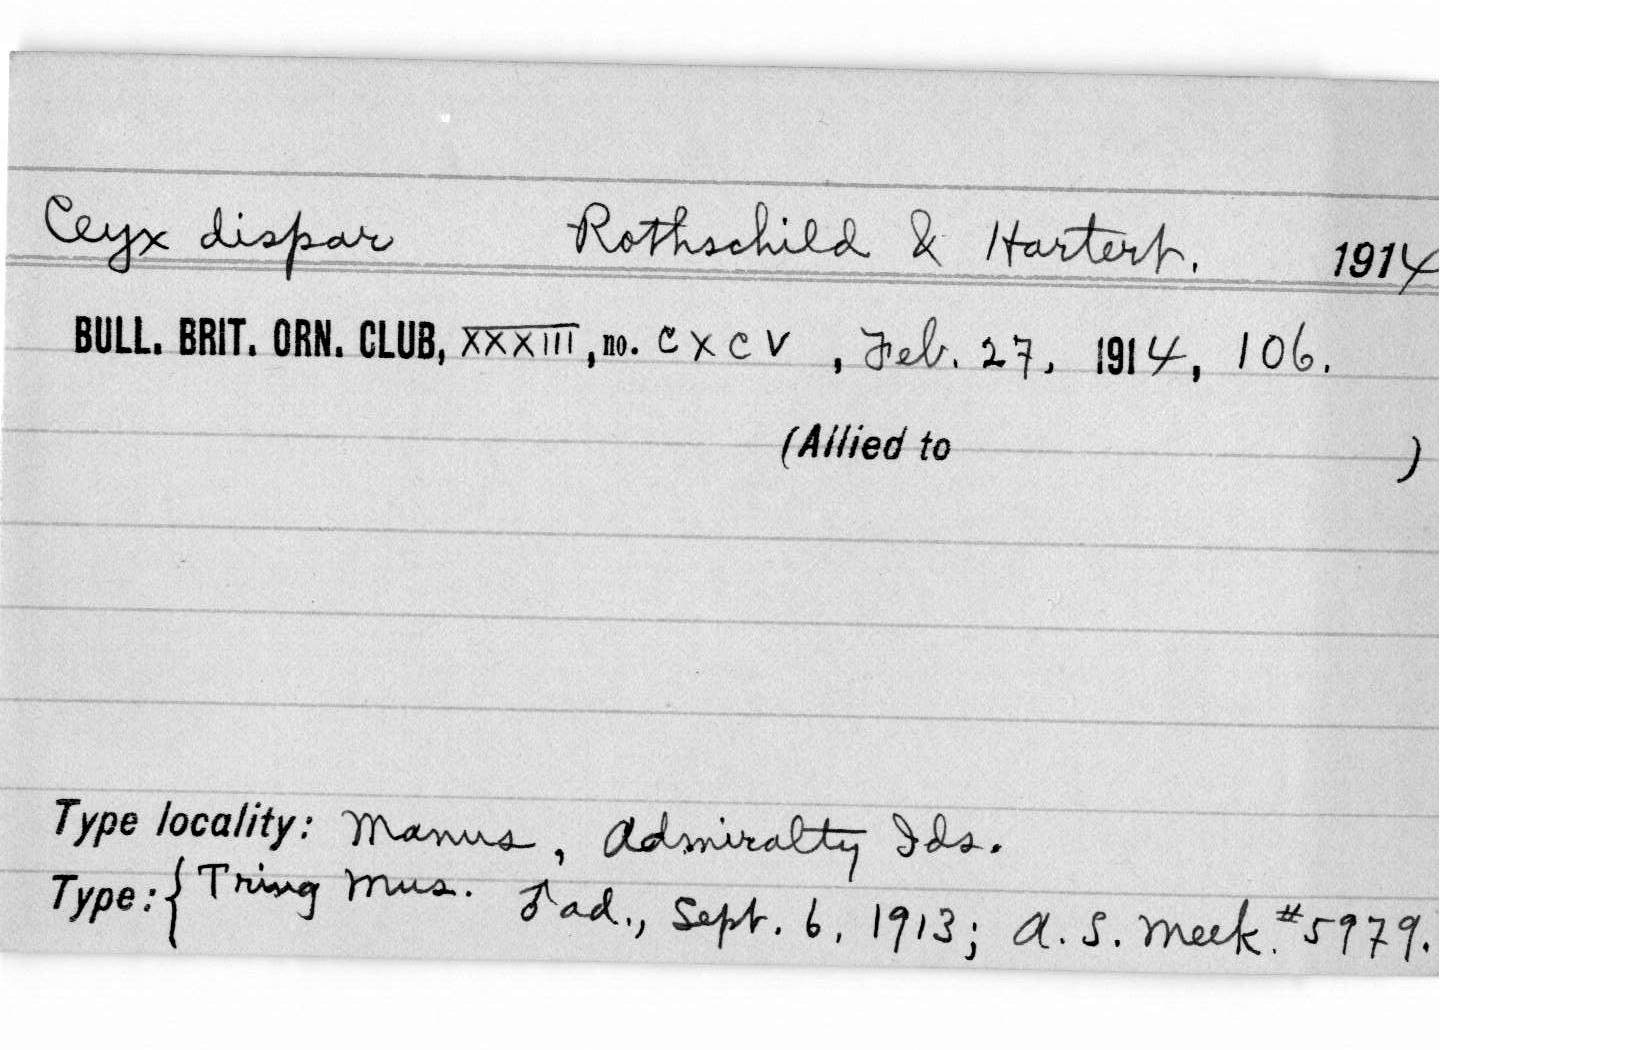 Ceyx dispar Rothschild & Hartert. 1914
BULL. BRIT. ORN. CLUB, XXXIII, no. CXCV, Feb. 27, 1914, 106.
(Allied to )
Type locality: Manus, Admiralty Ids.
Type: { Tring Mus. ♂ ad., Sept. 6, 1913; A. S. Meek. #5979.